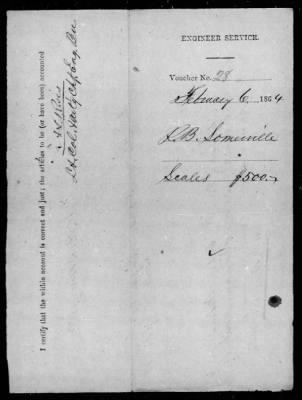 ENGINEER SERVICE.
Voucher No. 28
February 6, 1864
L.B. Somerville
Scales $500.-
I certify that the within account is correct and just; the articles to be (or have been) accounted
Lt. Col.